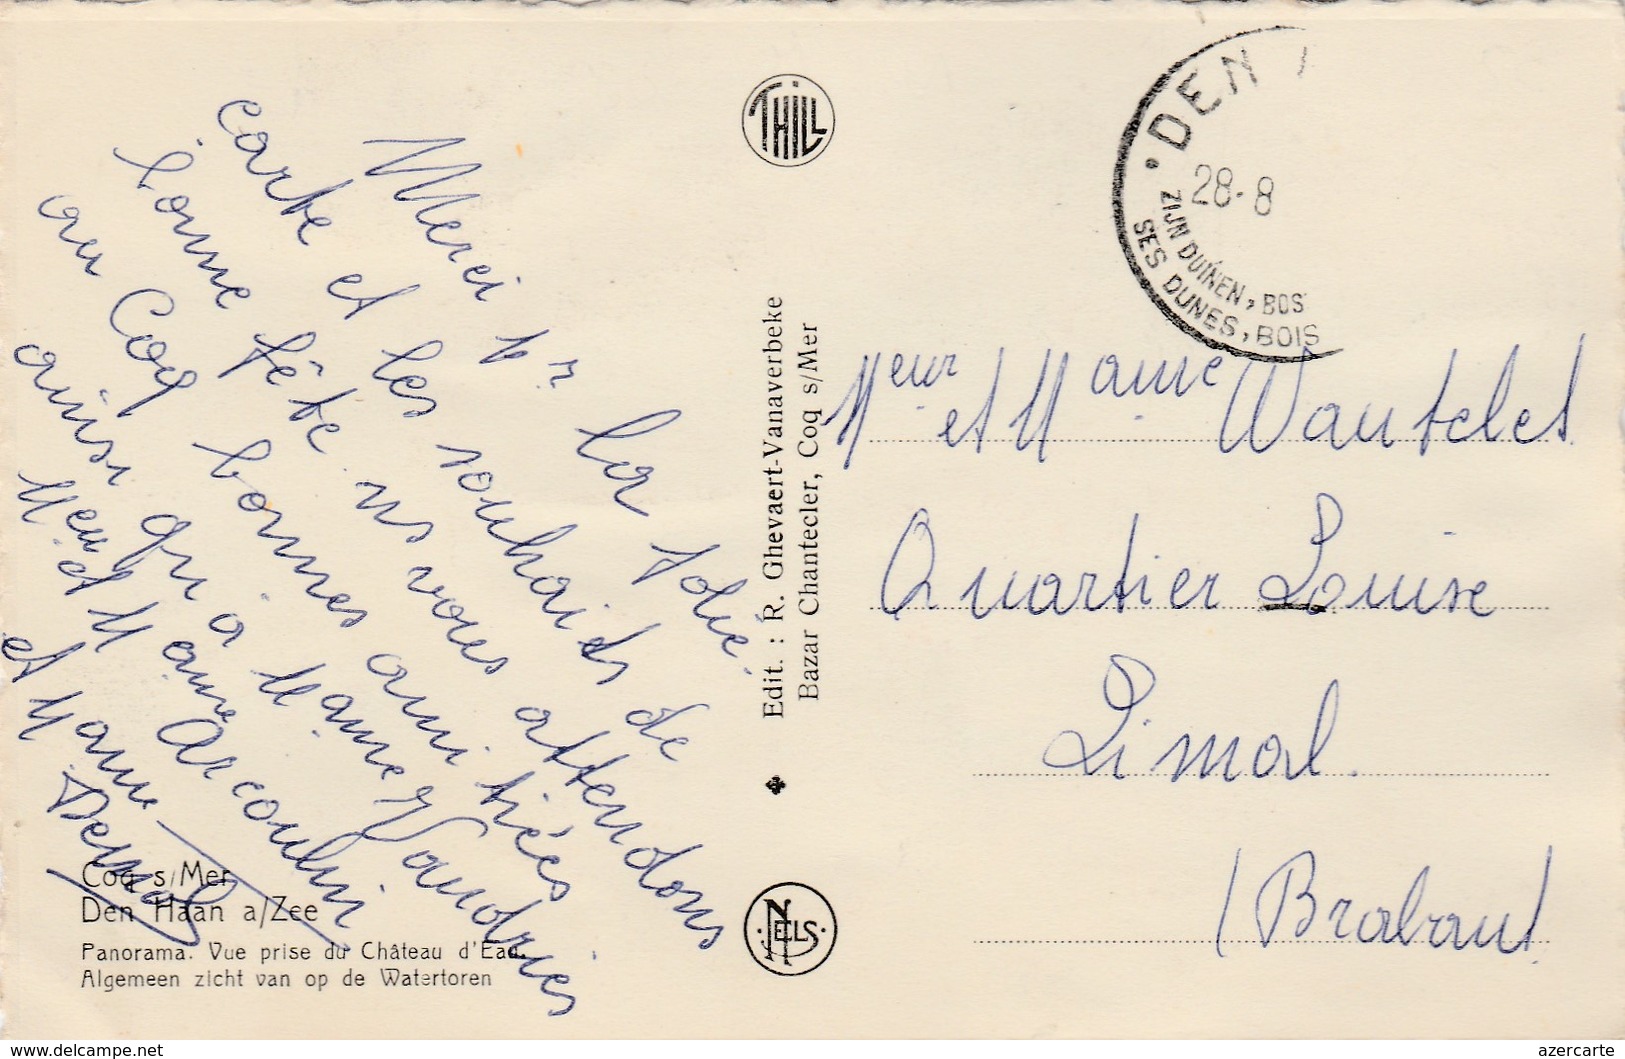 Merci pr la jolie
carte et les souhaits de
bonne fête ns vous attendons
au Coq bonnes amitiés
ainsi qu'à Mame Vaudries
Meur et Mame Arcoulin
et Mame
Coq s/Mer
Den Haan a/Zee
Panorama. Vue prise du Château d'Eau.
Algemeen zicht van op de Watertoren
THILL
Edit. : R. Ghevaert-Vanaverbeke
Bazar Chantecler, Coq s/Mer
NELS
DEN
28-8
ZIJN DUINEN, BOS
SES DUNES, BOIS
Meur et Mame Wautelet
Quartier Louise
Limal.
(Brabant
www.delcampe.net
azercarte